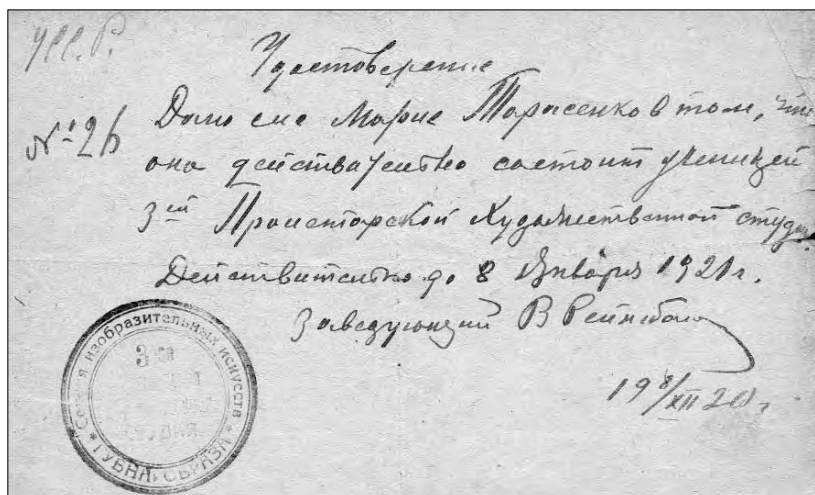 УСС.Р.
Удостоверение
№ 26
Дано сие Марие Тарасенко в том, что
она действительно состоит ученицей
3ей Пролетарской Художественной студии.
Действительно до 8 Января 1921 г.
Заведующий В
19 8/XII 20 г.
Секция изобразительных искусств
3